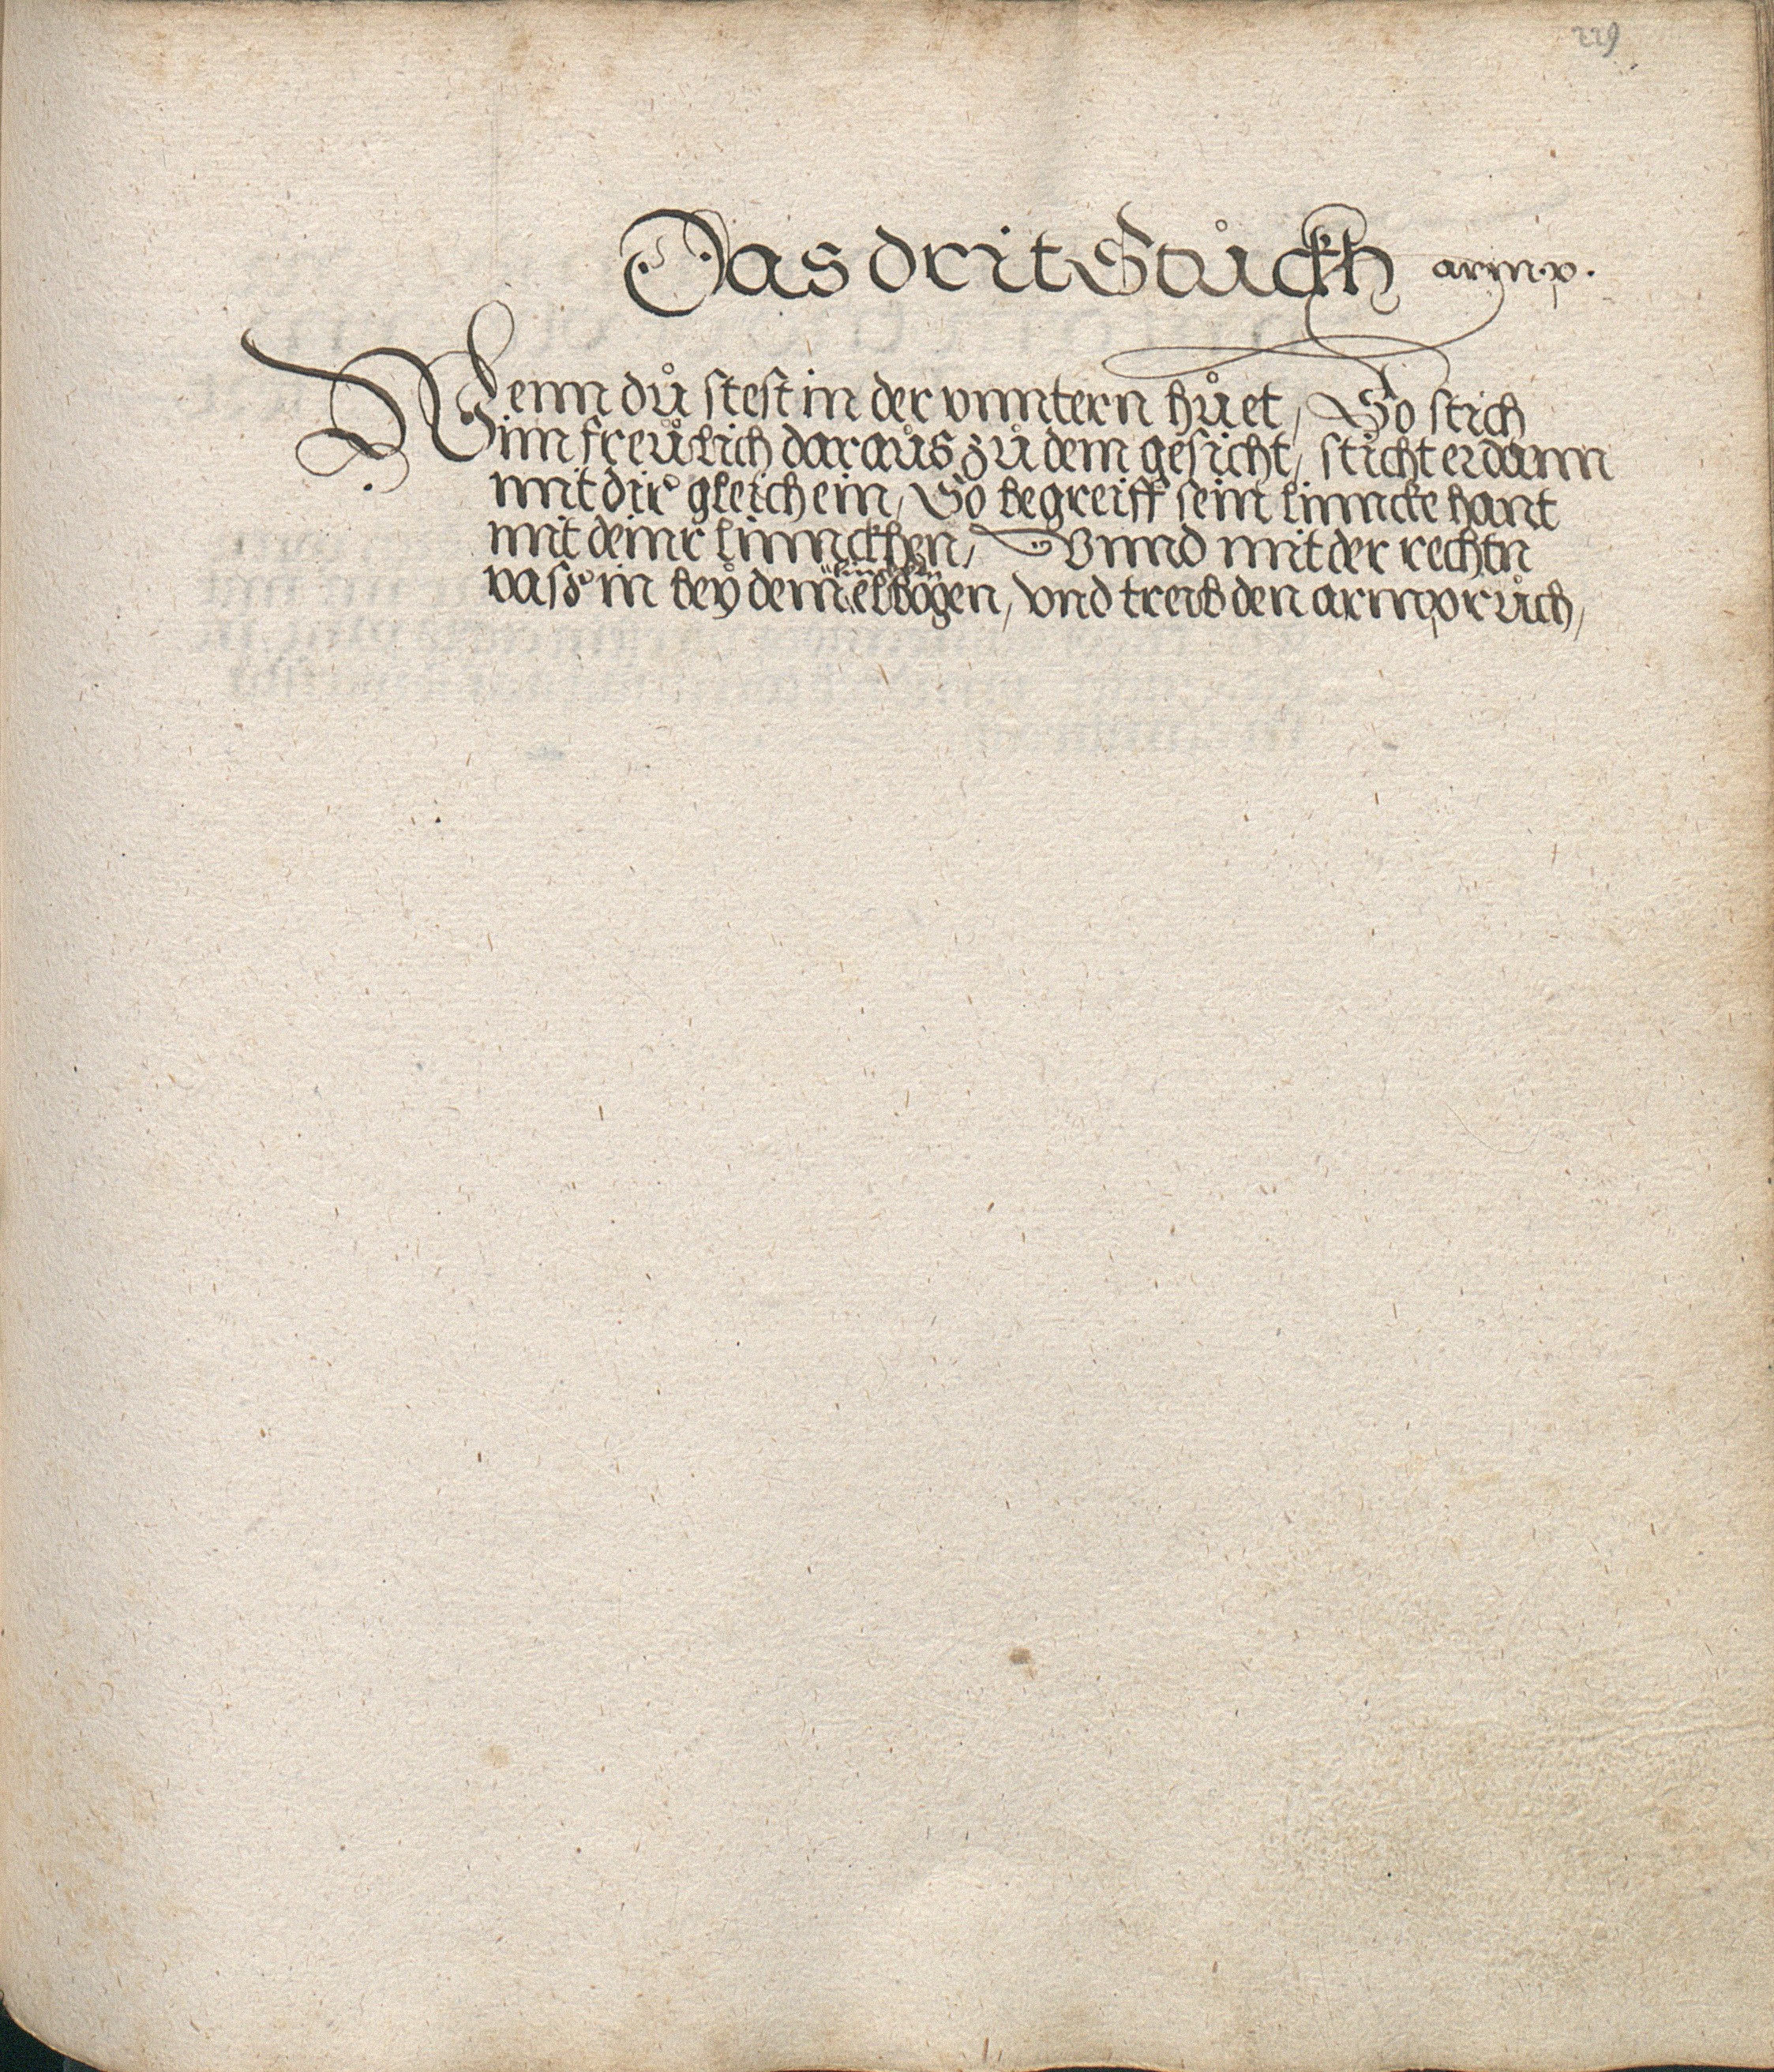 229
Das drit Stůckh arm.p.
Wenn dů stest in der vnntern hůet, So stich
im freẘlich daraůs zů dem gesicht, sticht er dann
mit dir gleich ein, So begreiff sein linncke hant
mit deinr linnckhen, Vnnd mit der rechtn
vass in bey dem elbogen, vnd treib den armprůch,